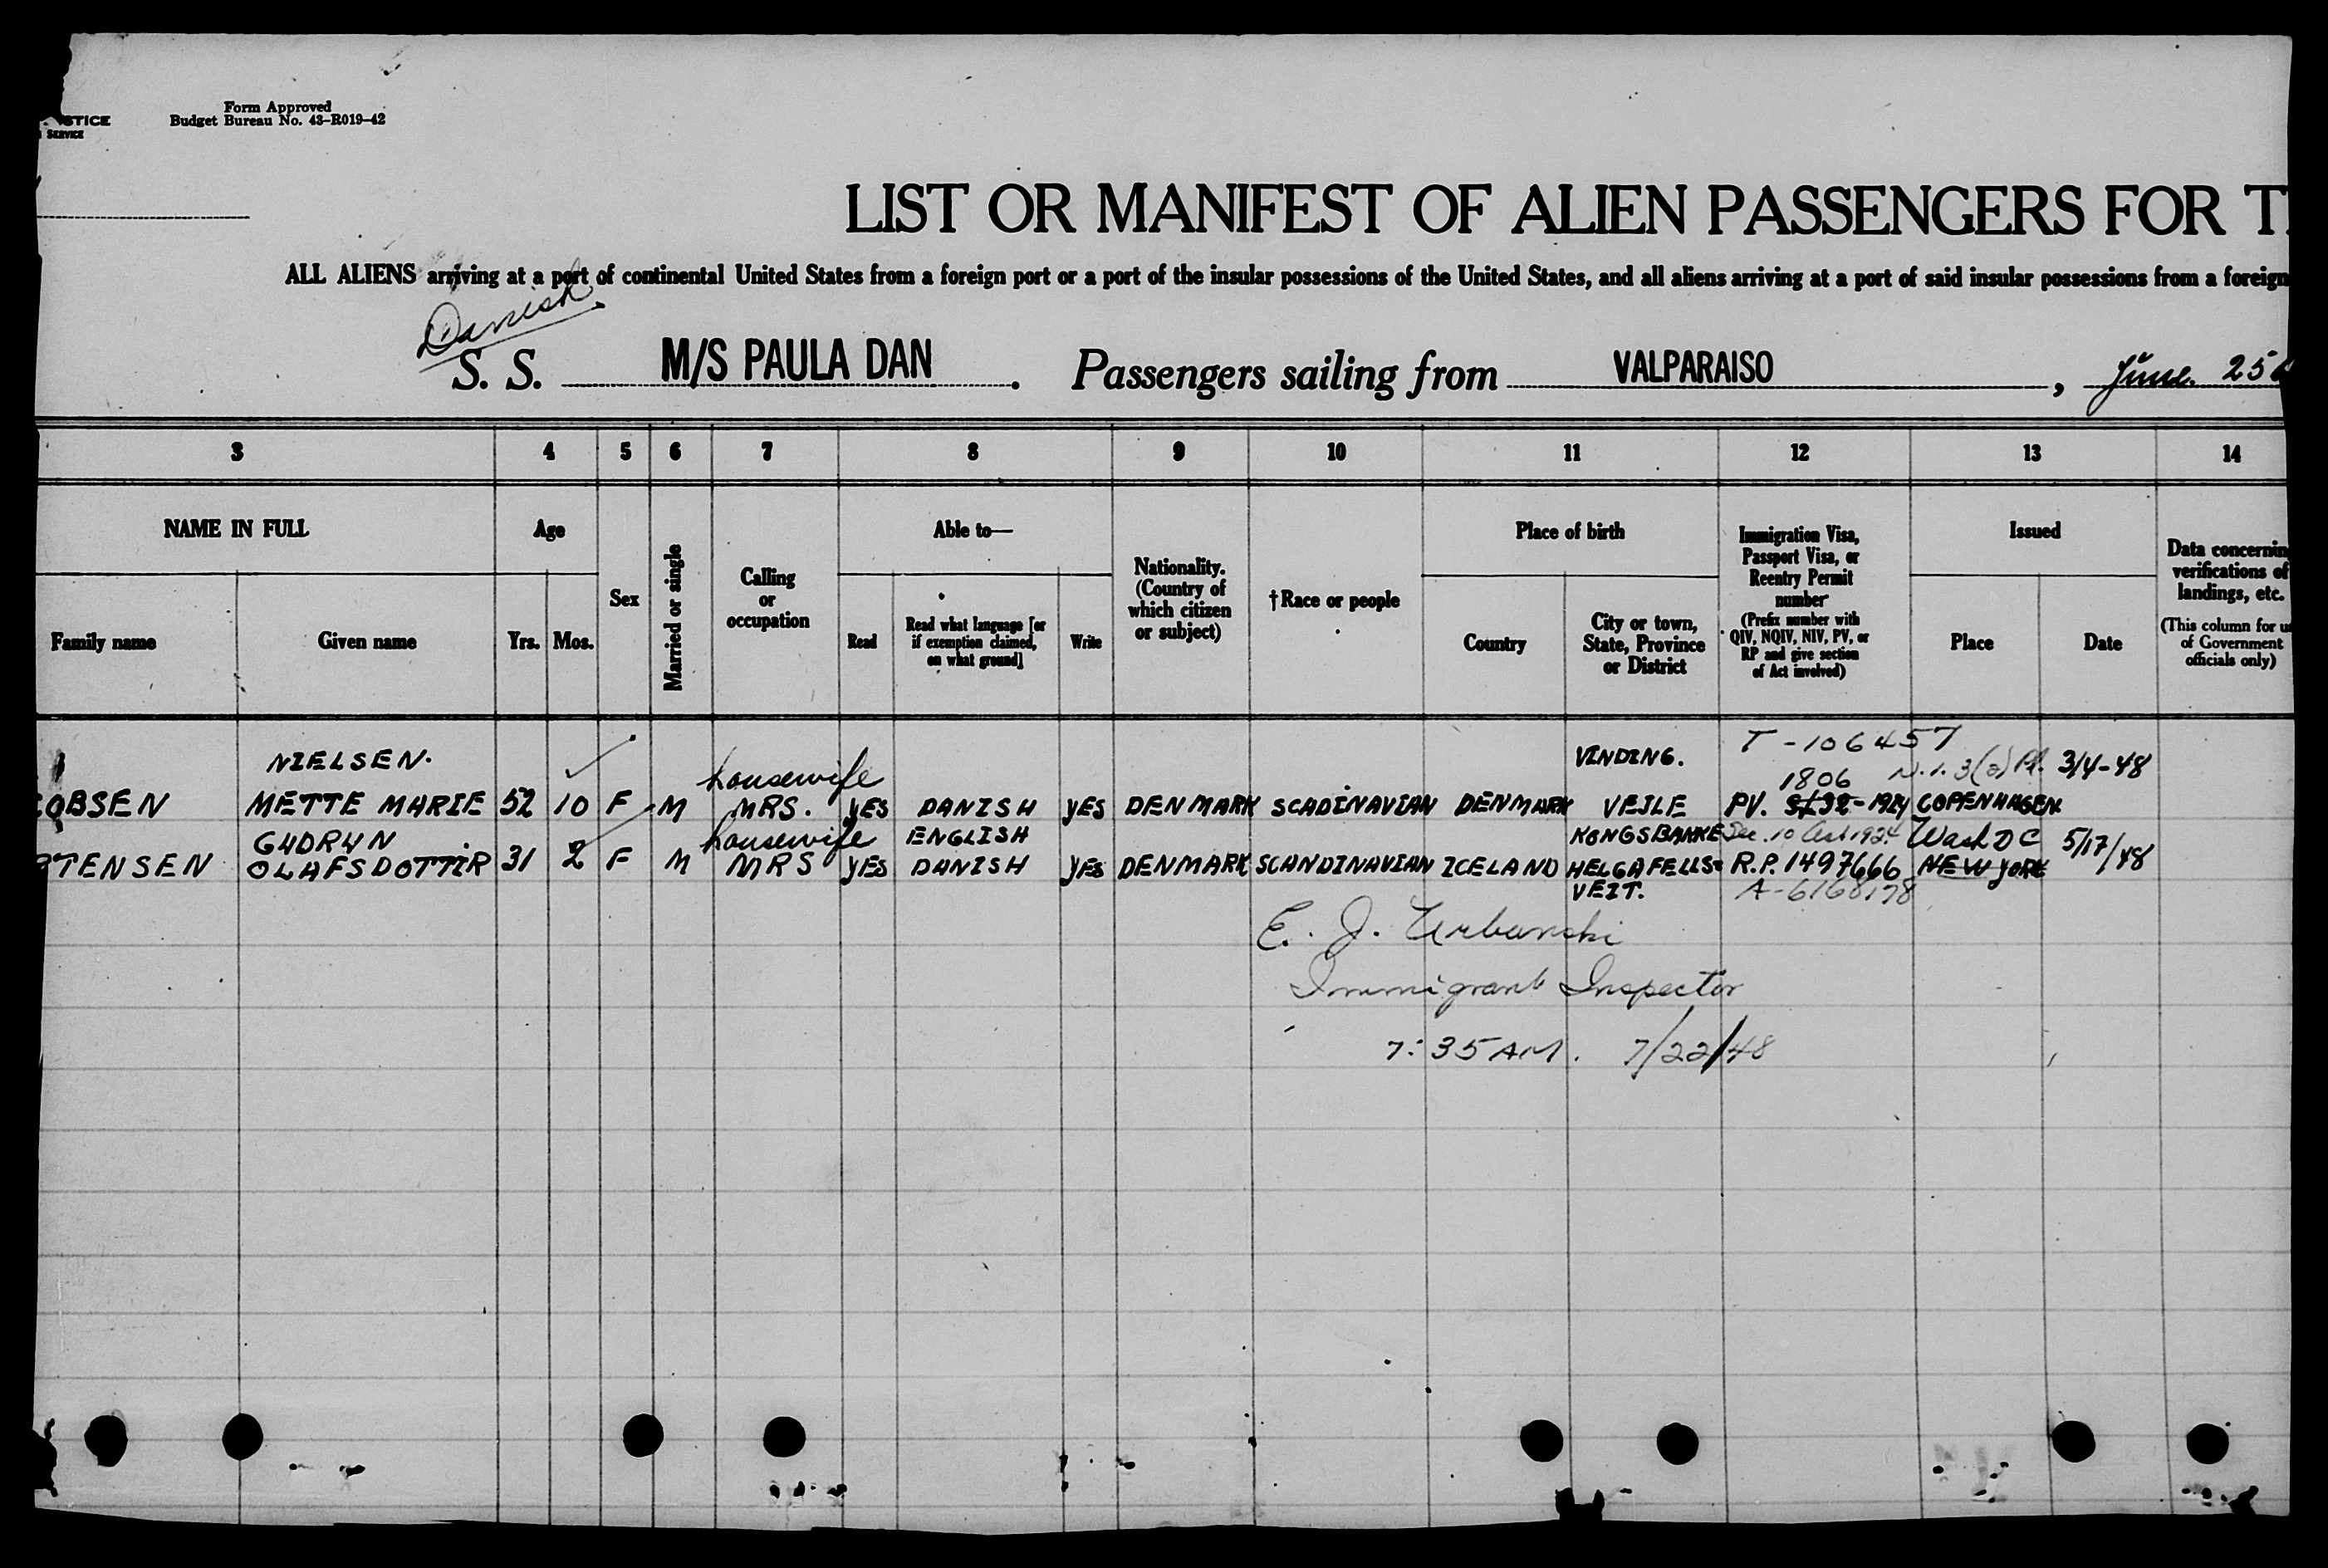 STICE
SERVICE
Form Approved
Budget Bureau No. 43-R019-42
LIST OR MANIFEST OF ALIEN PASSENGERS FOR T
ALL ALIENS arriving at a port of continental United States from a foreign port or a port of the insular possessions of the United States, and all aliens arriving at a port of said insular possessions from a foreign
Danish
S. S. M/S PAULA DAN. Passengers sailing from VALPARAISO, June. 25
3 4 5 6 7 8 9 10 11 12 13 14
NAME IN FULL
Family name
Given name
Age
Yrs. Mos.
Sex
Married or single
Calling
or
occupation
Able to—
Read
Read what language [or
if exemption claimed,
on what ground]
Write
Nationality.
(Country of
which citizen
or subject)
†Race or people
Place of birth
Country
City or town,
State, Province
or District
Immigration Visa,
Passport Visa, or
Reentry Permit
number
(Prefix number with
QIV, NQIV, NIV, PV, or
RP and give section
of Act involved)
Issued
Place
Date
Data concernin
verifications of
landings, etc.
(This column for u
of Government
officials only)
NIELSEN. VINDING. T-106457
housewife 1806 3(2) 3/4-48
OBSEN METTE MARIE 52 10 F M MRS. YES DANISH YES DENMARK SCADINAVIAN DENMARK VEJLE PV. 1924 COPENHAGEN
GUDRUN housewife ENGLISH KONGSBAKKE Sec. 10 Act 1924 Wash DC 5/17/48
TENSEN OLAFSDOTTIR 31 2 F M MRS YES DANISH YES DENMARK SCANDINAVIAN ICELAND HELGAFELLS= R.P. 1497666 NEW YORK
VEIT. A-6168178
E. J. Urbanski
Immigrant Inspector
7:35 AM. 7/22/48